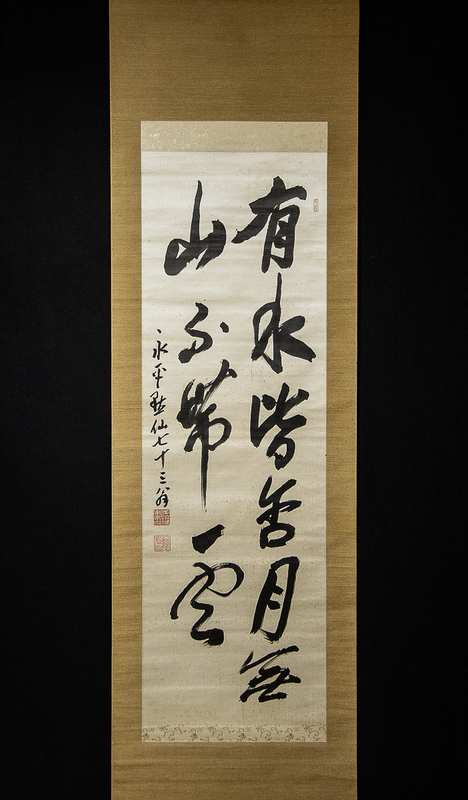 有水皆含月無
山不帶雲
永平黙仙七十三翁